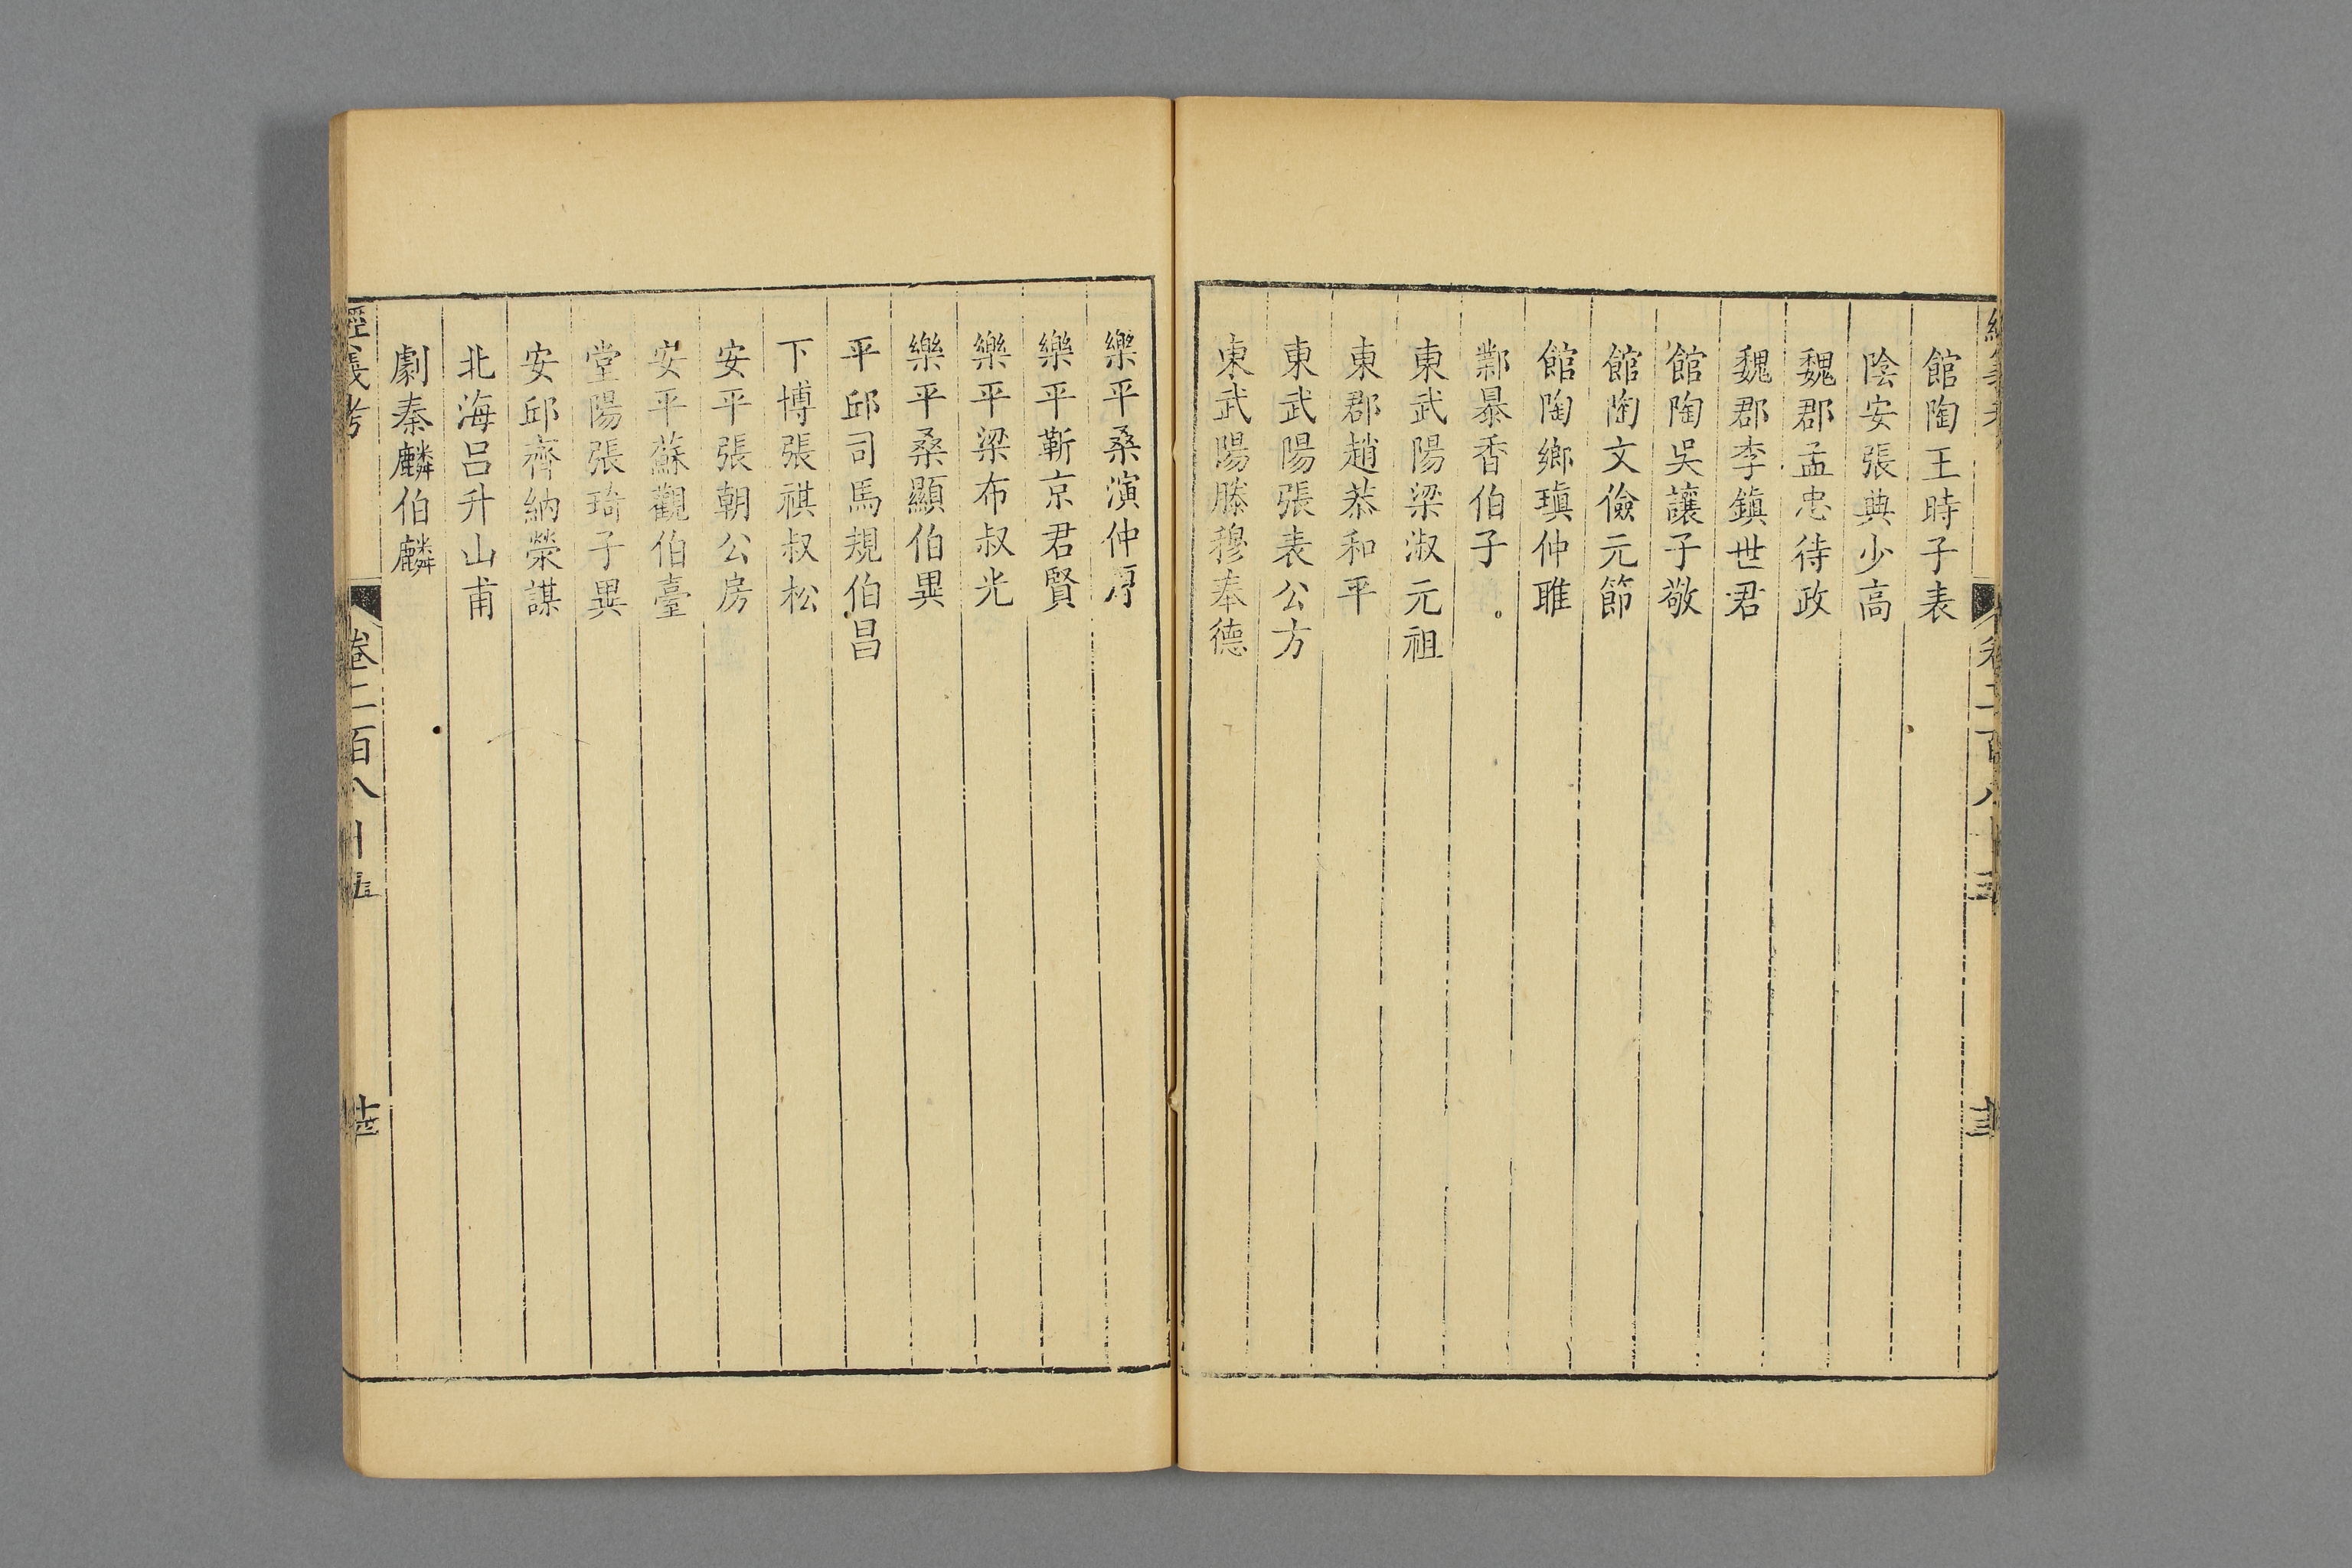 館陶王時子表
陰安張典少高
魏郡孟忠待政
魏郡李鎮世君
館陶吳讓子敬
館陶文儉元節
館陶鄉瑱仲雎
鄴暴香伯子
東武陽梁淑元祖
東郡趙恭和平
東武陽張表公方
東武陽滕穆奉德
樂平桑演仲厚
樂平靳京君賢
樂平梁布叔光
樂平桑顯伯異
平邱司馬規伯昌
下博張祺叔松
安平張朝公房
安平蘇觀伯臺
堂陽張琦子異
安邱齊納榮謀
北海呂升山甫
劇秦麟伯麟
經義考
卷二百八十五